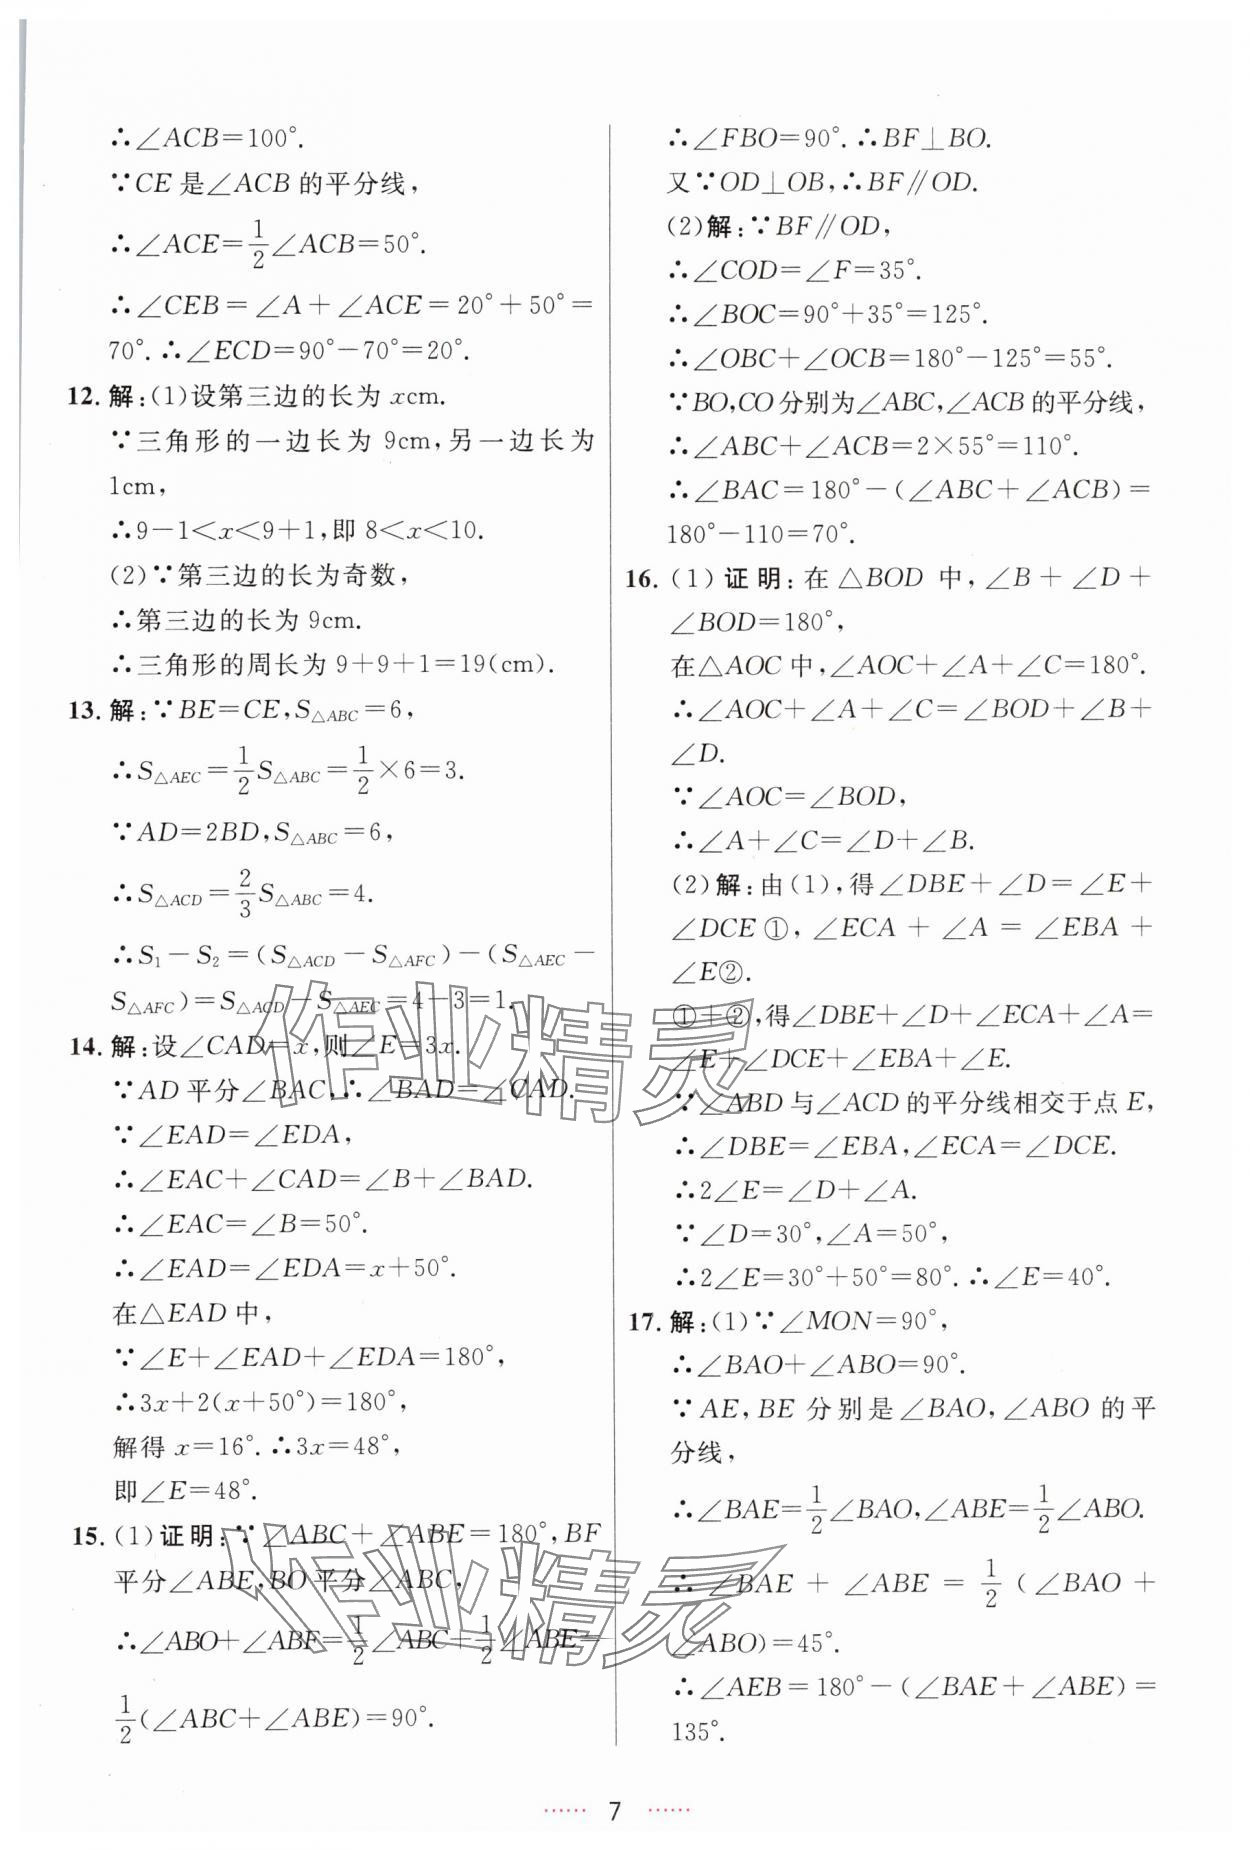 ∴∠ACB=100°.
∵CE是∠ACB的平分线,
∴∠ACE=1/2∠ACB=50°.
∴∠CEB=∠A+∠ACE=20°+50°=
70°.∴∠ECD=90°-70°=20°.
12.解:(1)设第三边的长为xcm.
∵三角形的一边长为9cm,另一边长为
1cm,
∴9-1<x<9+1,即8<x<10.
(2)∵第三边的长为奇数,
∴第三边的长为9cm.
∴三角形的周长为9+9+1=19(cm).
13.解:∵BE=CE,S△ABC=6,
∴S△AEC=1/2S△ABC=1/2×6=3.
∵AD=2BD,S△ABC=6,
∴S△ACD=2/3S△ABC=4.
∴S₁-S₂=(S△ACD-S△AFC)-(S△AEC-
S△AFC)=S△ACD-S△AEC=4-3=1.
14.解:设∠CAD=x,则∠E=3x.
∵AD平分∠BAC,∴∠BAD=∠CAD.
∵∠EAD=∠EDA,
∴∠EAC+∠CAD=∠B+∠BAD.
∴∠EAC=∠B=50°.
∴∠EAD=∠EDA=x+50°.
在△EAD中,
∵∠E+∠EAD+∠EDA=180°,
∴3x+2(x+50°)=180°,
解得x=16°.∴3x=48°,
即∠E=48°.
15.(1)证明:∵∠ABC+∠ABE=180°,BF
平分∠ABE,BO平分∠ABC,
∴∠ABO+∠ABF=1/2∠ABC+1/2∠ABE=
1/2(∠ABC+∠ABE)=90°.
∴∠FBO=90°.∴BF⊥BO.
又∵OD⊥OB,∴BF∥OD.
(2)解:∵BF∥OD,
∴∠COD=∠F=35°.
∴∠BOC=90°+35°=125°.
∴∠OBC+∠OCB=180°-125°=55°.
∵BO,CO分别为∠ABC,∠ACB的平分线,
∴∠ABC+∠ACB=2×55°=110°.
∴∠BAC=180°-(∠ABC+∠ACB)=
180°-110=70°.
16.(1)证明:在△BOD中,∠B+∠D+
∠BOD=180°,
在△AOC中,∠AOC+∠A+∠C=180°.
∴∠AOC+∠A+∠C=∠BOD+∠B+
∠D.
∵∠AOC=∠BOD,
∴∠A+∠C=∠D+∠B.
(2)解:由(1),得∠DBE+∠D=∠E+
∠DCE①,∠ECA+∠A=∠EBA+
∠E②.
①+②,得∠DBE+∠D+∠ECA+∠A=
∠E+∠DCE+∠EBA+∠E.
∵∠ABD与∠ACD的平分线相交于点E,
∴∠DBE=∠EBA,∠ECA=∠DCE.
∴2∠E=∠D+∠A.
∵∠D=30°,∠A=50°,
∴2∠E=30°+50°=80°.∴∠E=40°.
17.解:(1)∵∠MON=90°,
∴∠BAO+∠ABO=90°.
∵AE,BE分别是∠BAO,∠ABO的平
分线,
∴∠BAE=1/2∠BAO,∠ABE=1/2∠ABO.
∴∠BAE+∠ABE=1/2(∠BAO+
∠ABO)=45°.
∴∠AEB=180°-(∠BAE+∠ABE)=
135°.
作业精灵
作业精灵
······ 7 ······